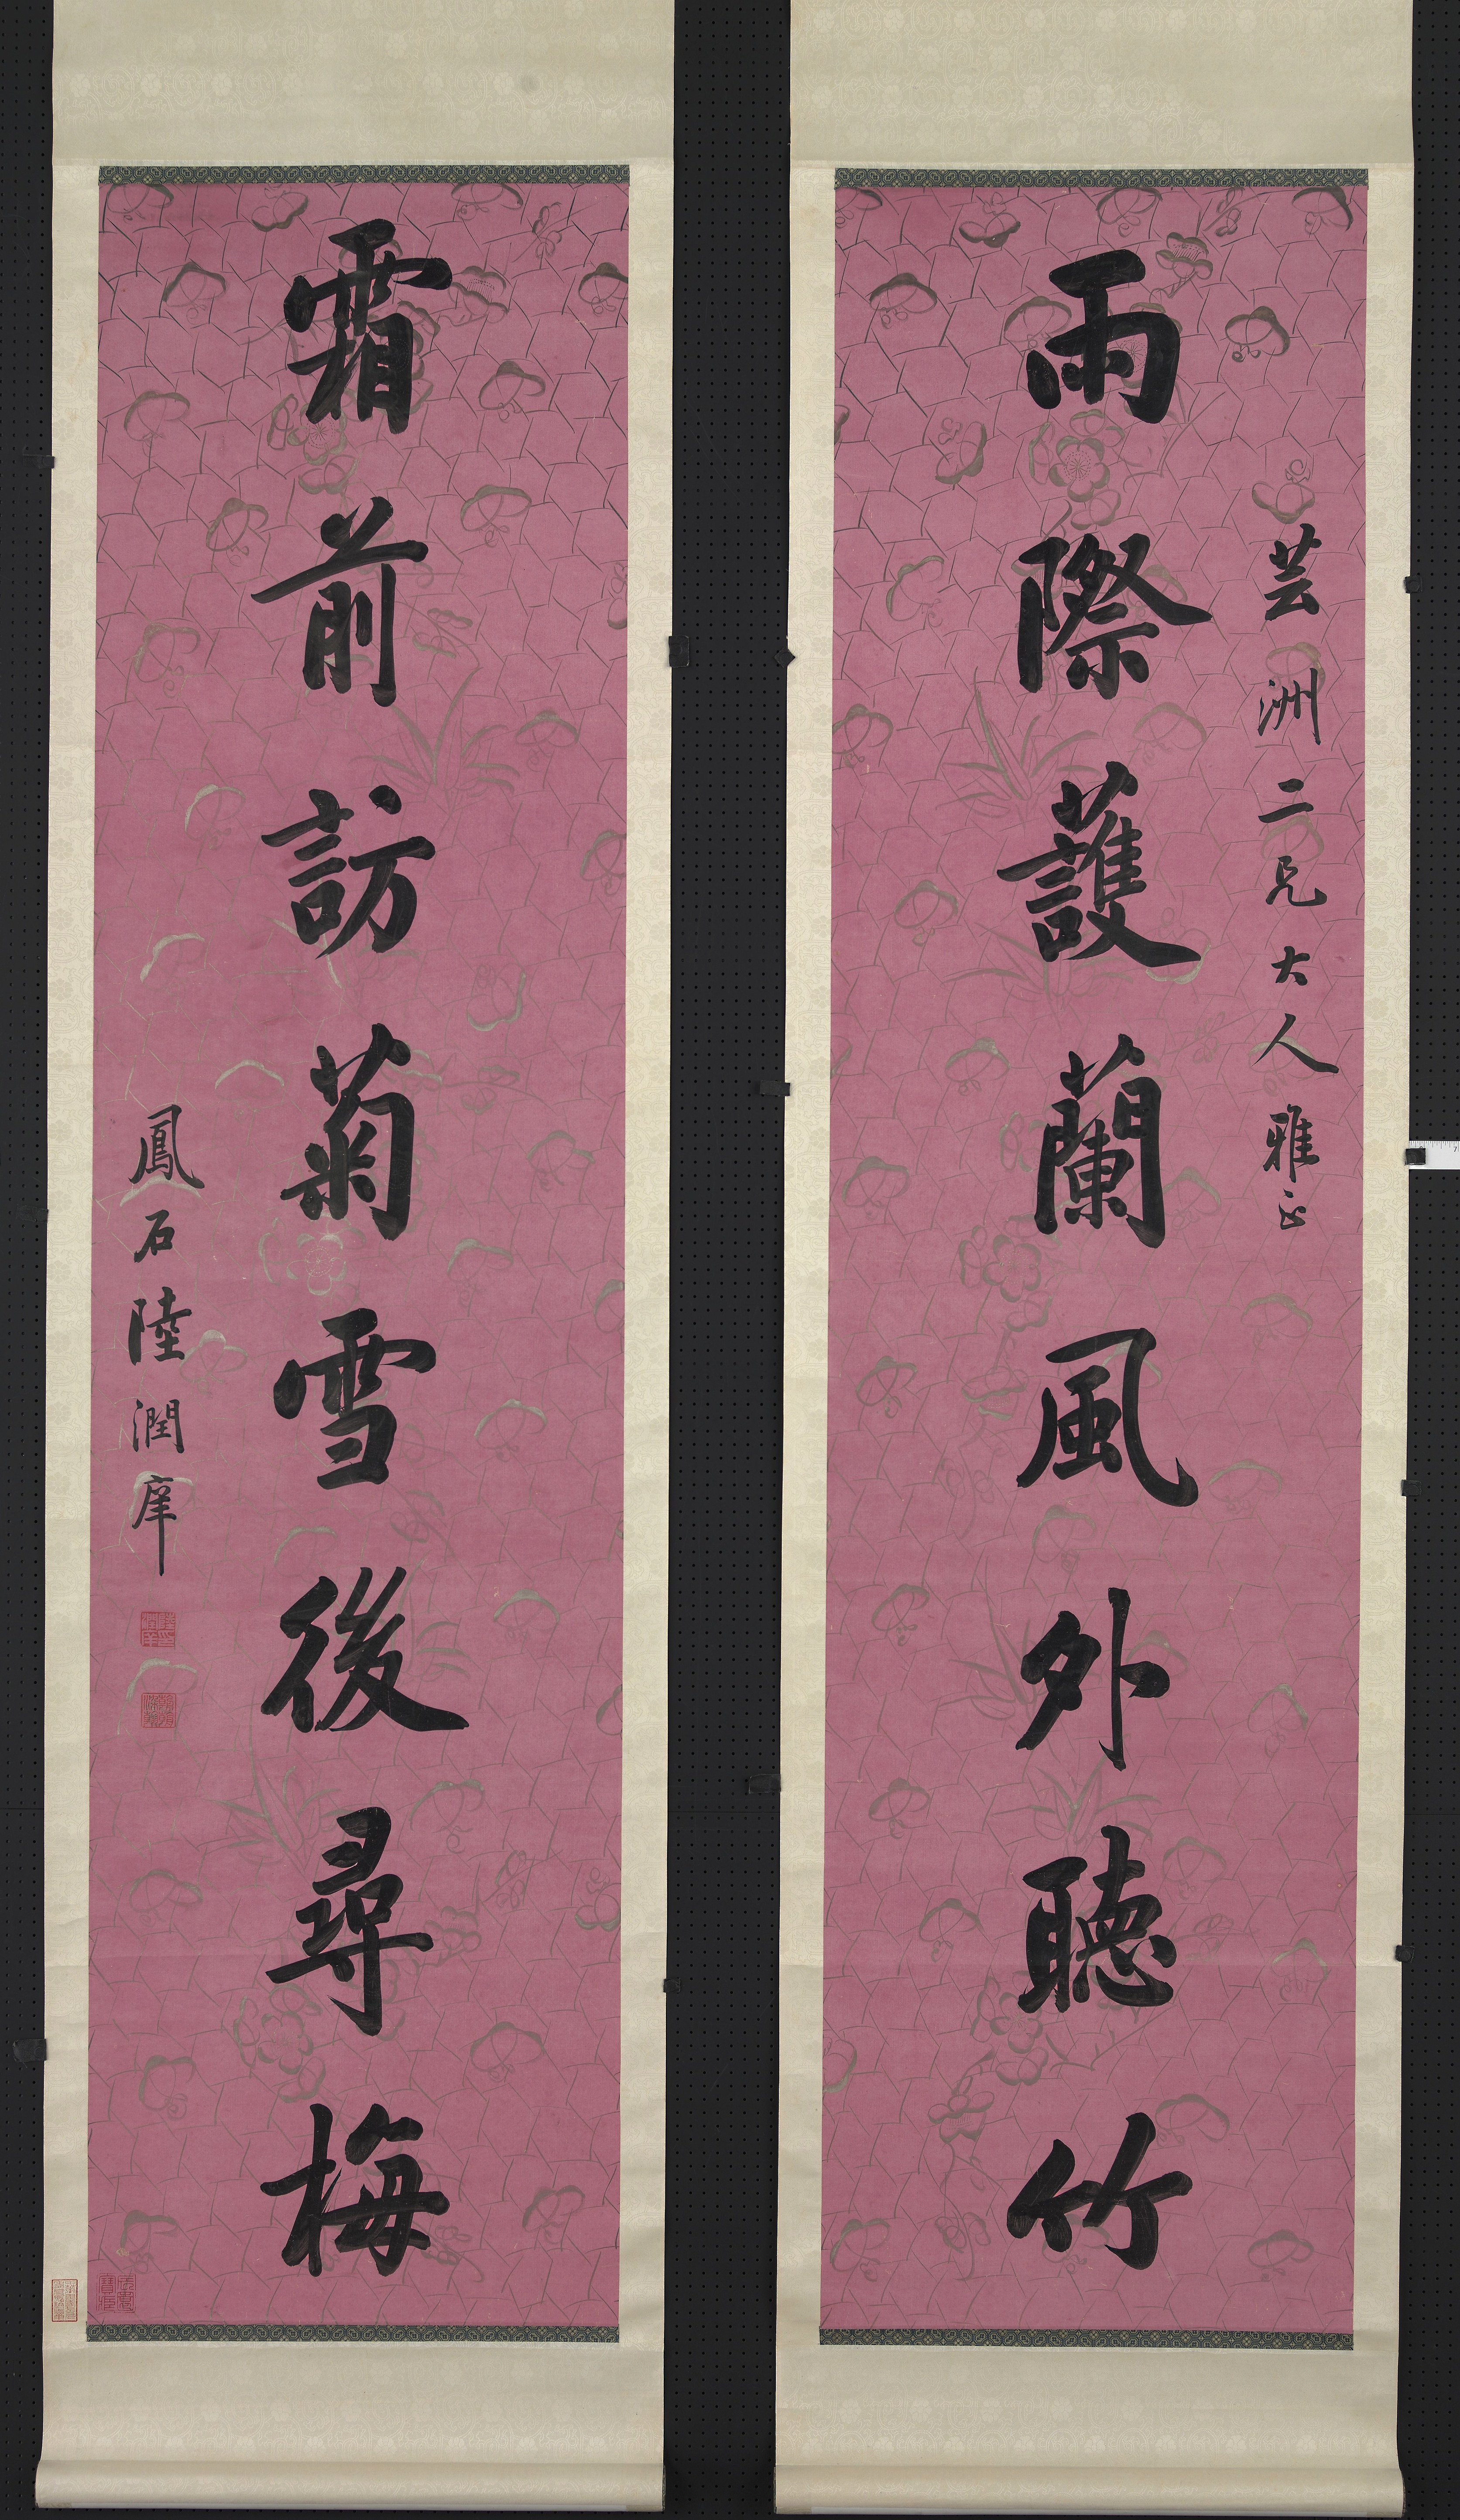 芸洲二兄大人雅正
雨際護蘭風外聽竹
霜前訪菊雪後尋梅
鳳石陸潤庠